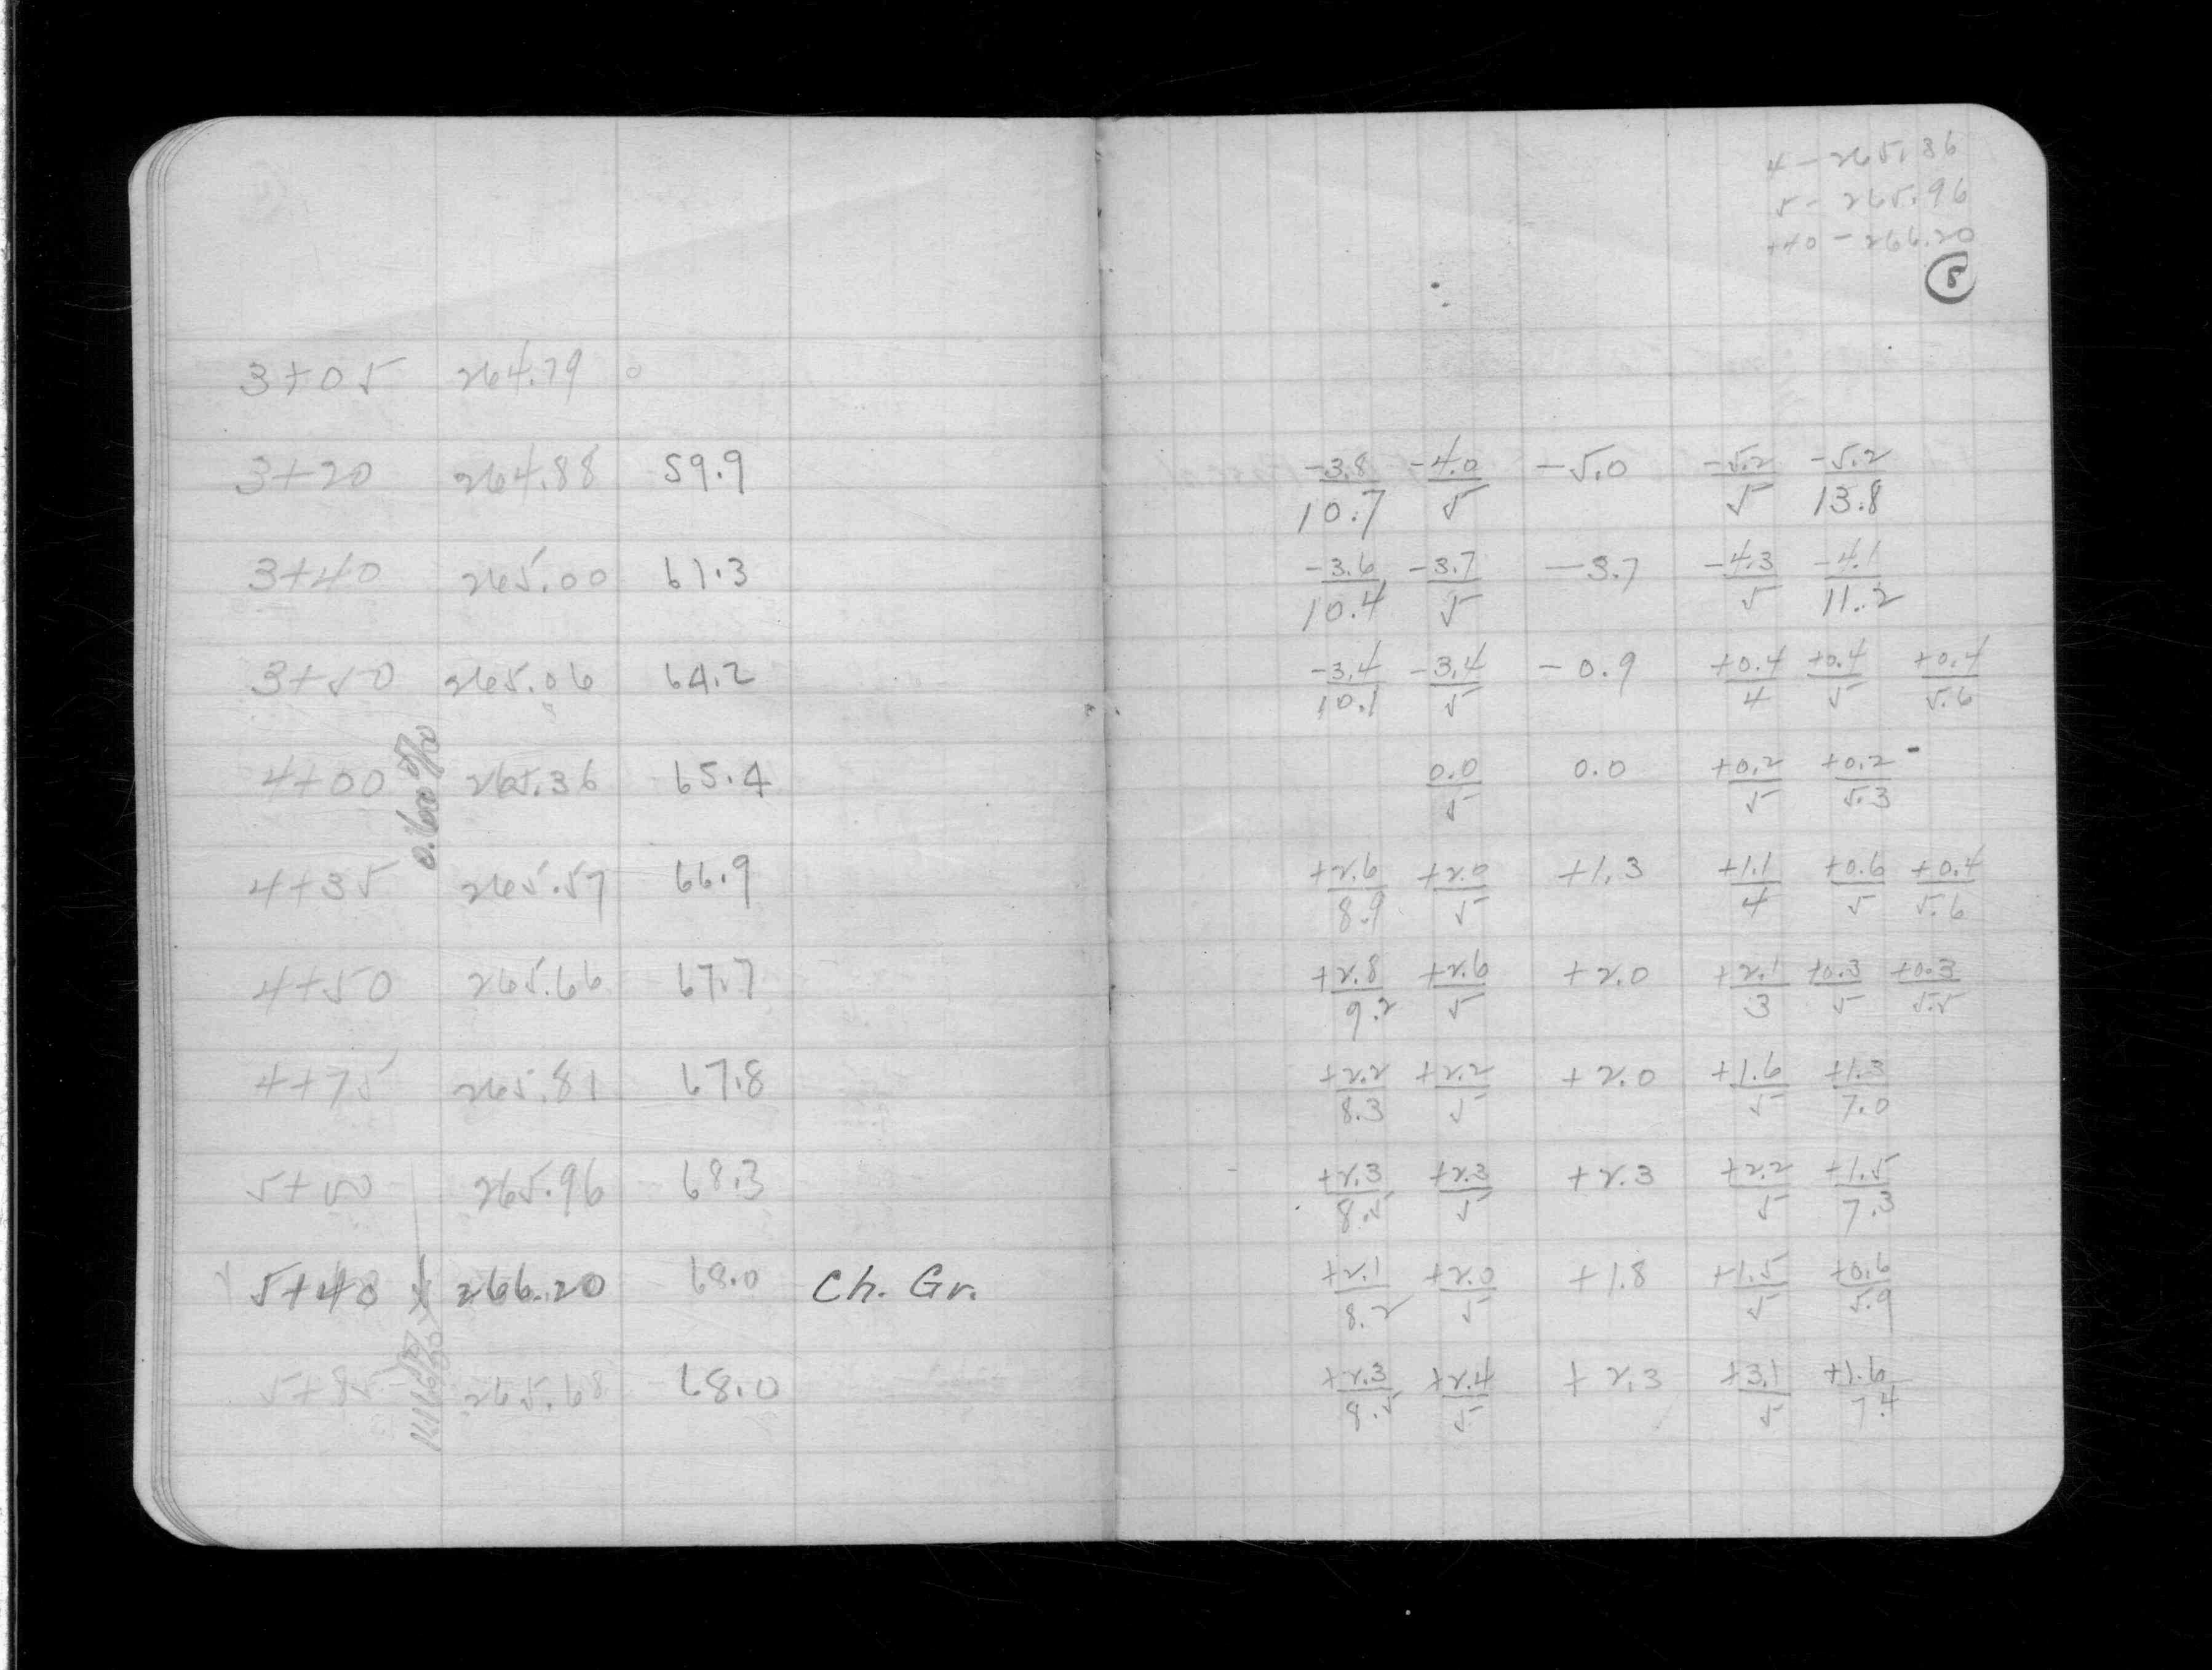 4 - 265.36
5 - 265.96
+40 - 266.20
5
3+05 264.79
3+20 264.88 59.9 -3.8/10.7 -4.0/5 -5.0 -5.2/5 -5.2/13.8
3+40 265.00 61.3 -3.6/10.4 -3.7/5 -3.7 -4.3/5 -4.1/11.2
3+50 265.06 64.2 -3.4/10.1 -3.4/5 -0.9 +0.4/4 +0.4/5 +0.4/5.6
0.600%
4+00 265.36 65.4 0.0/5 0.0 +0.2/5 +0.2/5.3
4+35 265.57 66.9 +2.6/8.9 +2.0/5 +1.3 +1.1/4 +0.6/5 +0.4/5.6
4+50 265.66 67.7 +2.8/9.2 +2.6/5 +2.0 +2.1/3 +0.3/5 +0.3/5.5
4+75 265.81 67.8 +2.2/8.3 +2.2/5 +2.0 +1.6/5 +1.3/7.0
5+00 265.96 68.3 +2.3/8.5 +2.3/5 +2.3 +2.2/5 +1.5/7.3
5+40 266.20 68.0 Ch. Gr. +2.1/8.2 +2.0/5 +1.8 +1.5/5 +0.6/5.9
5+85 265.68 68.0 +2.3/8.5 +2.4/5 +2.3 +3.1/5 +1.6/7.4